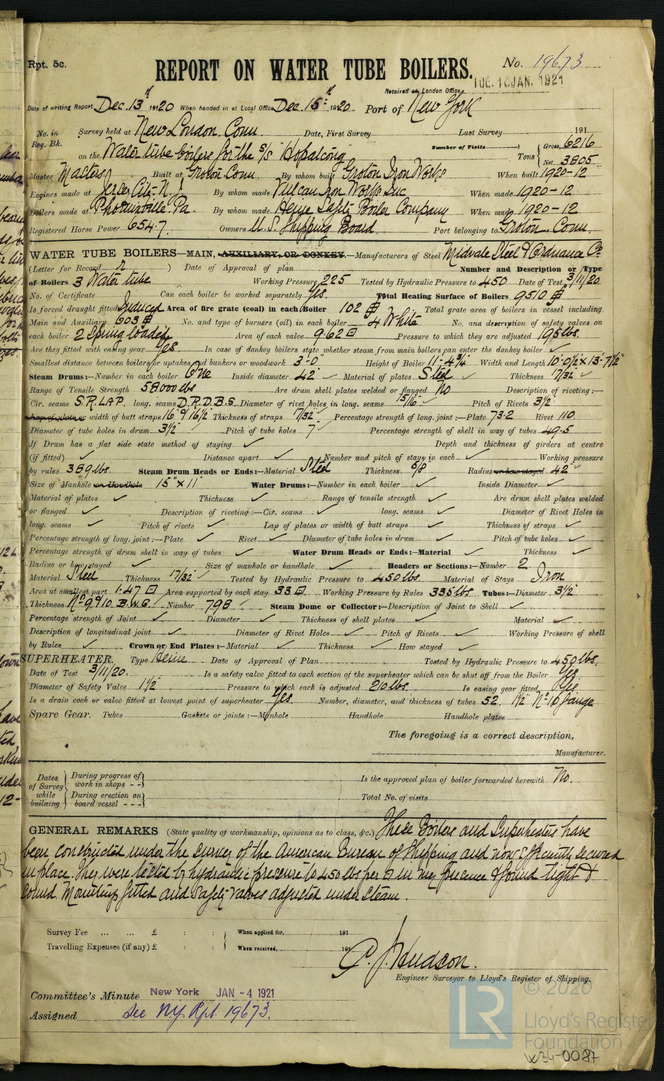 Rpt. 5c.
REPORT ON WATER TUBE BOILERS.
No. 19673
Received at London Office
1921
Date of writing Report Dec. 13th 1920 When handed in at Local Office Dec. 15th 1920 Port of New York
No. in Survey held at New London Conn Date, First Survey Last Survey 191
Reg. Bk. on the Water tube boilers for the S/S Hopatcong Number of Visits Tons Gross 6216 Net 3805
Master Masters Built at Groton Conn. By whom built Groton Iron Works When built 1920-12
Engines made at Jersey City N.J. By whom made Vulcan Iron Works Inc When made 1920-12
Boilers made at Phoenixville Pa By whom made Heine Safety Boiler Company When made 1920-12
Registered Horse Power 654.7 Owners U.S. Shipping Board Port belonging to Groton, Conn.
WATER TUBE BOILERS—MAIN, AUXILIARY, OR DONKEY.—Manufacturers of Steel Midvale Steel & Ordnance Co
(Letter for Record ) Date of Approval of plan Number and Description or Type
of Boilers 3 Water tube Working Pressure 225 Tested by Hydraulic Pressure to 450 Date of Test 3/11/20
No. of Certificate Can each boiler be worked separately Yes Total Heating Surface of Boilers 9510
Is forced draught fitted Induced Area of fire grate (coal) in each Boiler 102 Total grate area of boilers in vessel including
Main and Auxiliary 603 No. and type of burners (oil) in each boiler 4 White No. and description of safety valves on
each boiler 2 Spring loaded Area of each valve 9.62 Pressure to which they are adjusted 195 lbs.
Are they fitted with easing gear Yes In case of donkey boilers state whether steam from main boilers can enter the donkey boiler ✓
Smallest distance between boiler or uptakes and bunkers or woodwork 3'-0" Height of Boiler 11'-4 3/4" Width and Length 10'-0 1/2" × 13'-7 1/2"
Steam Drums:—Number in each boiler One Inside diameter 42" Material of plates Steel Thickness 7/32"
Range of Tensile Strength 58000 lbs Are drum shell plates welded or flanged No Description of riveting:—
Cir. seams S.R. LAP. long. seams D.R.D.B.S. Diameter of rivet holes in long. seams 15/16" Pitch of Rivets 3 1/2
Lap of plates or width of butt straps 16" & 16 1/2" Thickness of straps 7/32" Percentage strength of long. joint:—Plate 73.2 Rivet 110
Diameter of tube holes in drum 3 1/2 Pitch of tube holes 7" Percentage strength of shell in way of tubes 49.5
If Drum has a flat side state method of staying ✓ Depth and thickness of girders at centre
(if fitted) ✓ Distance apart ✓ Number and pitch of stays in each ✓ Working pressure
by rules 389 lbs. Steam Drum Heads or Ends:—Material Steel Thickness 5/8 Radius or how stayed 42"
Size of Manhole or Handhole 15" × 11" Water Drums:—Number in each boiler ✓ Inside Diameter ✓
Material of plates ✓ Thickness ✓ Range of tensile strength ✓ Are drum shell plates welded
or flanged ✓ Description of riveting:—Cir. seams ✓ long. seams ✓ Diameter of Rivet Holes in
long. seams ✓ Pitch of rivets ✓ Lap of plates or width of butt straps ✓ Thickness of straps ✓
Percentage strength of long. joint:—Plate ✓ Rivet ✓ Diameter of tube holes in drum ✓ Pitch of tube holes ✓
Percentage strength of drum shell in way of tubes ✓ Water Drum Heads or Ends:—Material ✓ Thickness ✓
Radius or how stayed ✓ Size of manhole or handhole ✓ Headers or Sections:—Number 2
Material Steel Thickness 17/32" Tested by Hydraulic Pressure to 450 lbs. Material of Stays Iron
Area at smallest part 1.47 Area supported by each stay 33 Working Pressure by Rules 335 lbs. Tubes:—Diameter 3 1/2
Thickness No 9 & 10 B.W.G. Number 798 Steam Dome or Collector:—Description of Joint to Shell ✓
Percentage strength of Joint ✓ Diameter ✓ Thickness of shell plates ✓ Material ✓
Description of longitudinal joint ✓ Diameter of Rivet Holes ✓ Pitch of Rivets ✓ Working Pressure of shell
by Rules ✓ Crown or End Plates:—Material ✓ Thickness ✓ How stayed ✓
SUPERHEATER. Type Heine Date of Approval of Plan Tested by Hydraulic Pressure to 450 lbs.
Date of Test 3/11/20. Is a safety valve fitted to each section of the superheater which can be shut off from the Boiler Yes.
Diameter of Safety Valve 1 1/2 Pressure to which each is adjusted 210 lbs. Is easing gear fitted Yes.
Is a drain cock or valve fitted at lowest point of superheater Yes. Number, diameter, and thickness of tubes 52. 1 1/2 No 10 gauge
Spare Gear. Tubes Gaskets or joints:—Manhole Handhole Handhole plates
The foregoing is a correct description,
Manufacturer.
Dates of Survey while building
During progress of work in shops - -
During erection on board vessel - - -
Is the approved plan of boiler forwarded herewith No.
Total No. of visits
GENERAL REMARKS (State quality of workmanship, opinions as to class, &c.) These Boilers and Superheaters have
been constructed under the survey of the American Bureau of Shipping and now efficiently secured
in place. They were tested by hydraulic pressure to 450 lbs per □ in my presence & found tight &
sound. Mounting fitted and safety valves adjusted under steam.
Survey Fee ... ... £ : : When applied for, 191
Travelling Expenses (if any) £ : : When received, 191
P. J. Hudson.
Engineer Surveyor to Lloyd's Register of Shipping.
Committee's Minute New York JAN -4 1921
Assigned See N.Y. Rpt. 19673.
LR © 2020
Lloyd's Register
Foundation
W34-0087